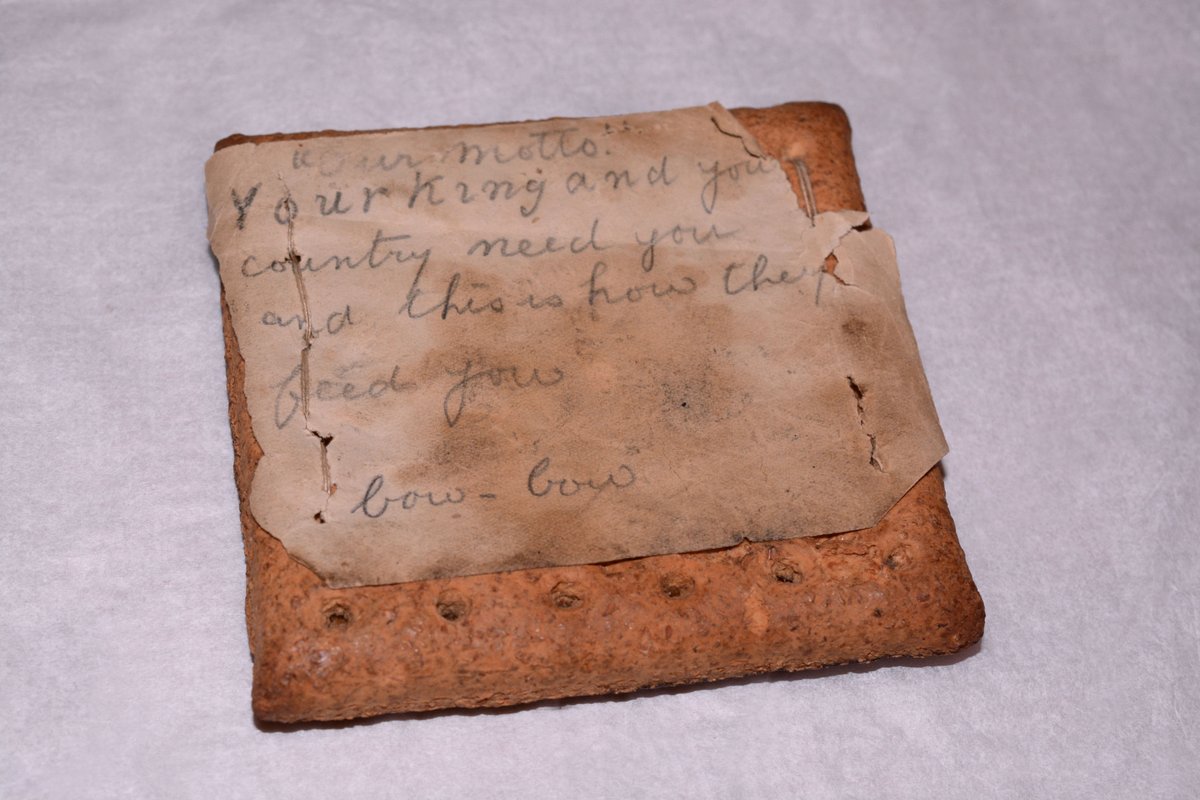 "Our motto."
Your King and you
country need you
and this is how they
feed you
bow - bow